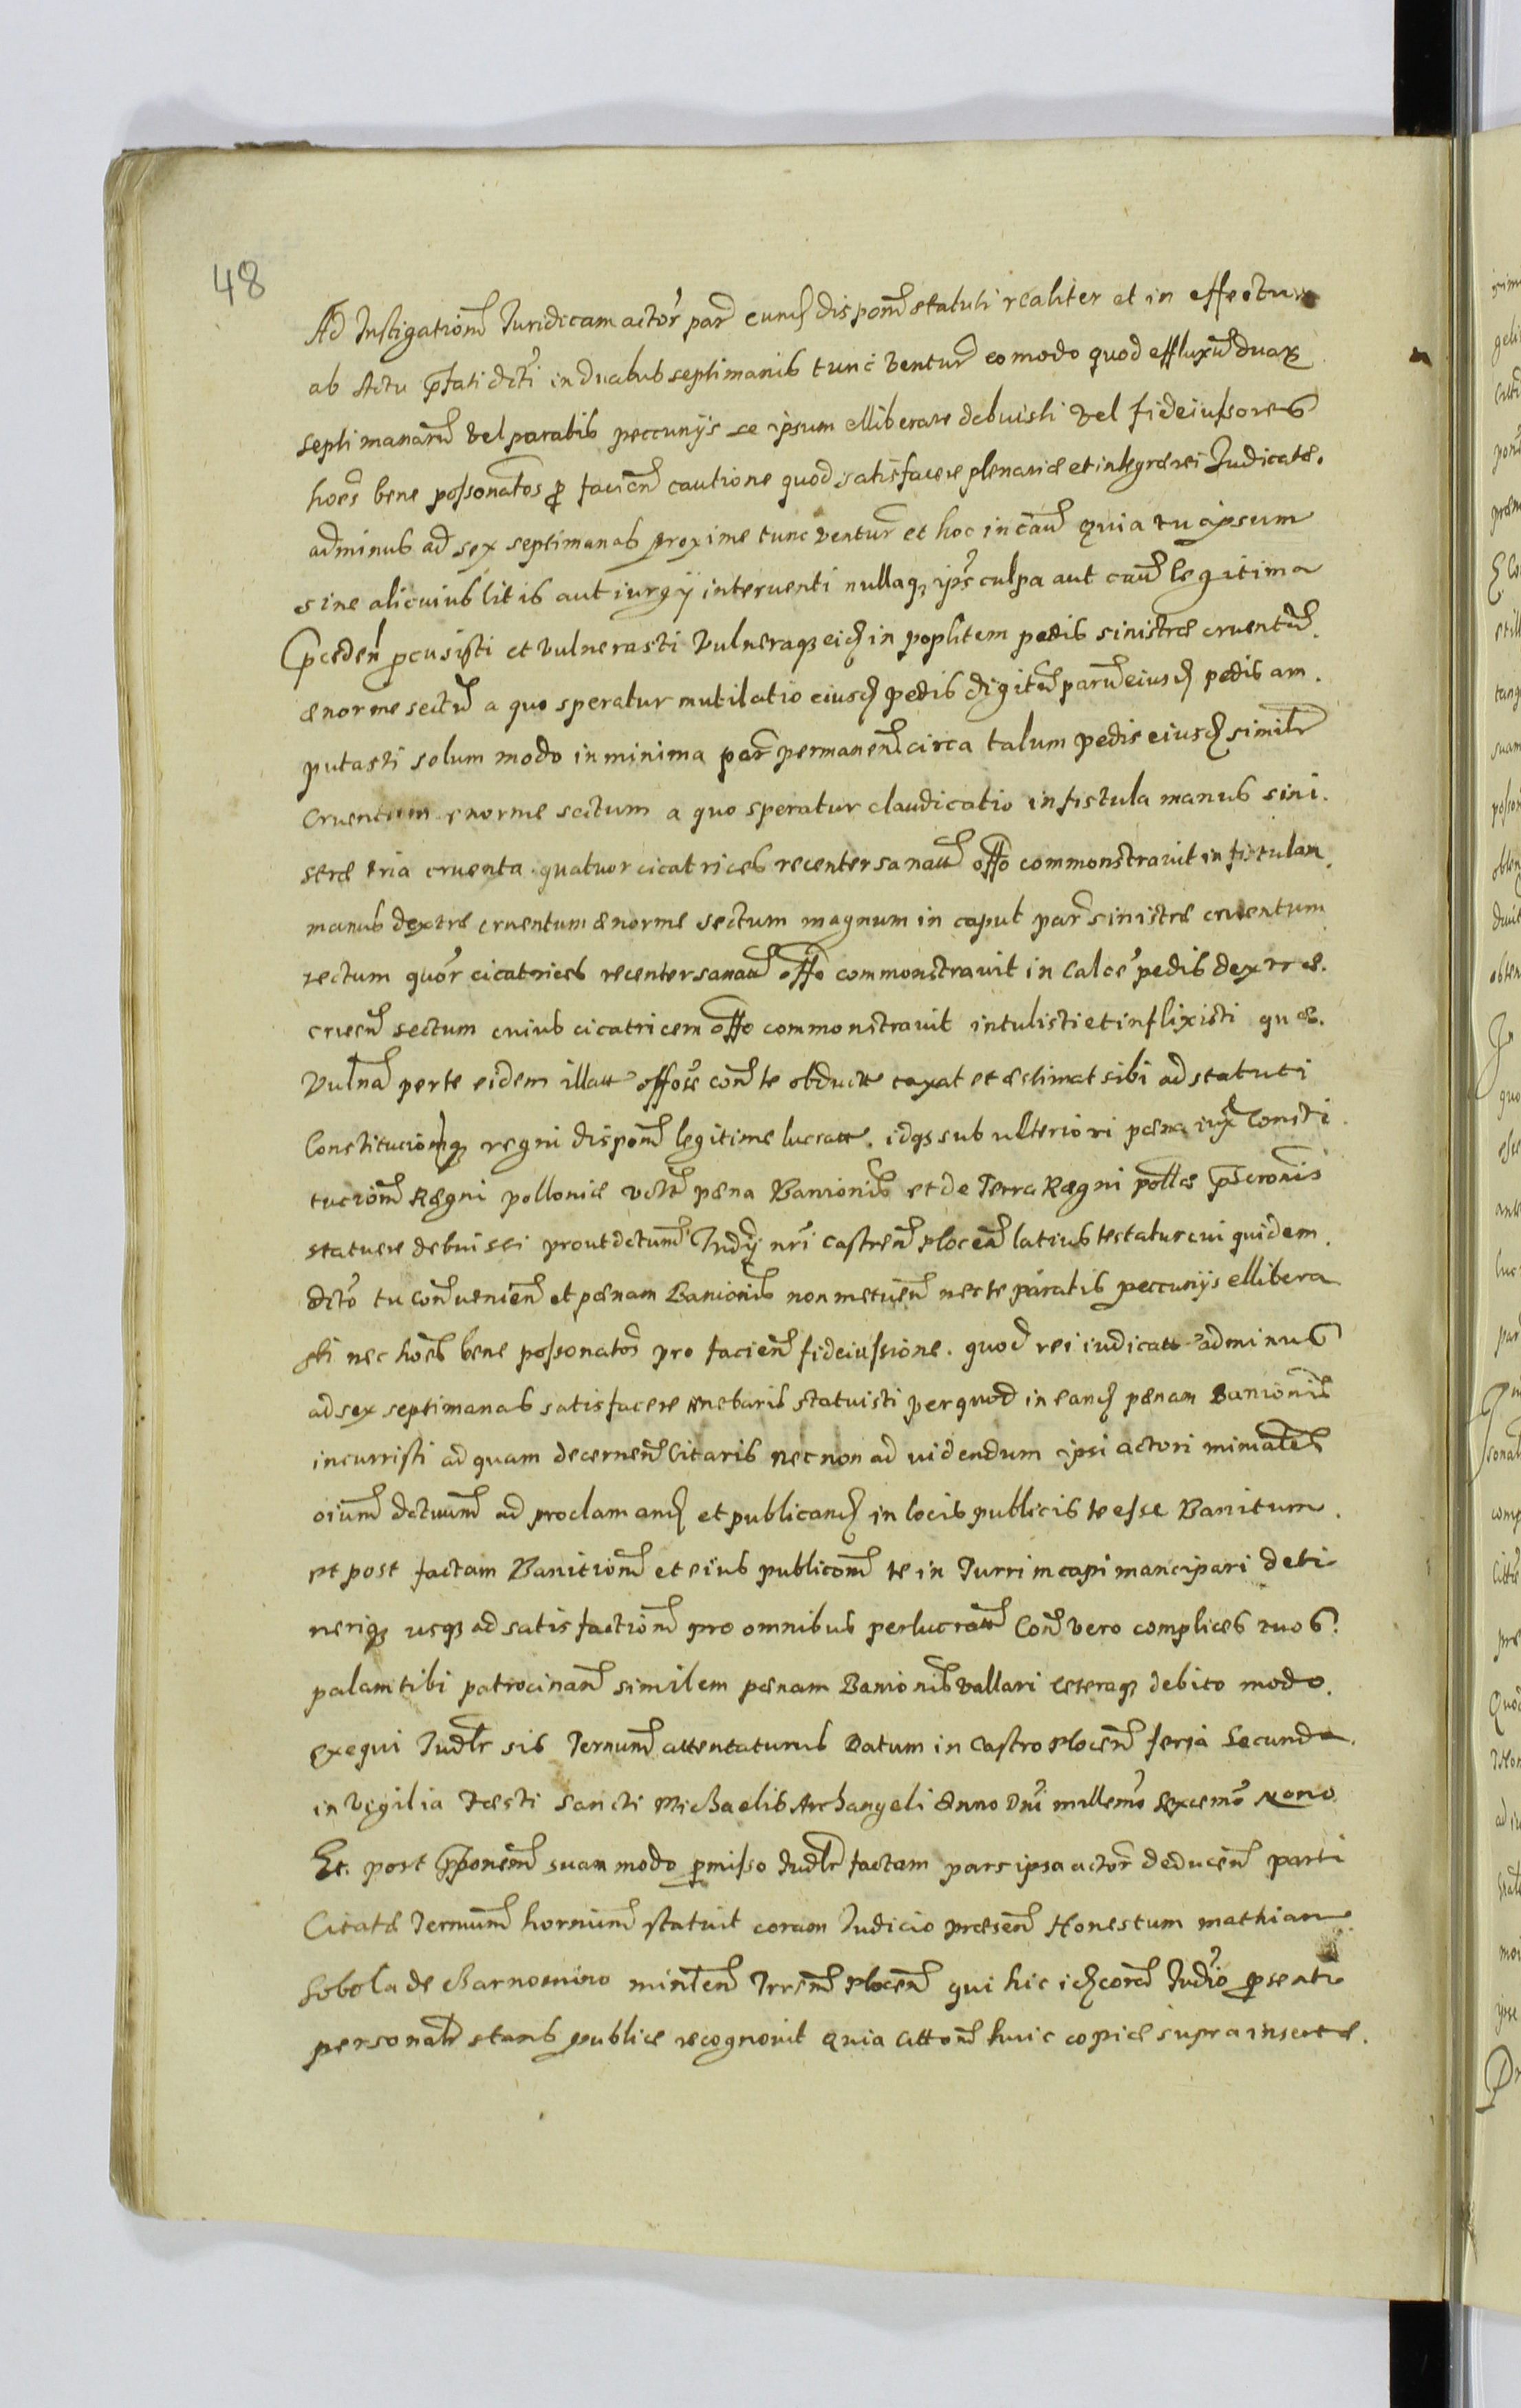 48
Ad Instigationẽ Juridicam actor̃ par̃ eund̃ disponẽ statuti realiter et in effectu
ab Actu p̃fati dct̃i in duabus septimanis tunc Ventur̃ eo modo quod effluxũ duaꝝ
septimanarũ vel paratis peccunijs te ipsum elliberare debuisti vel fideiussores
hoẽs bene possonatos ꝓ faciẽn cautione quod satisfacere plenariæ et integræ rei Judicatæ.
adminus ad sex septimanas proxime tunc ventur̃ et hoc in cau᷉ quia tu ipsum
sine alicuius litis aut iurgij interuenti nullaqꝫ ips᷉ culpa aut cau᷉ legitima
p̃ceden̄ ꝑcusisti et vulnerasti Vulneraqꝫ eid̃ in poplitem pedis sinistræ cruentũ
ænorme sectũ a quo speratur mutilatio eiusd̃ pedis digitũ paruũ eiusd̃ pedis am
putasti solum modo in minima par̃ permanen̄ circa talum pedis eiusd̃ simil̃r
cruentum enorme sectum a quo speratur claudicatio in fistula manus sini
stræ tria cruenta quatuor cicatrices recenter sanatt̃ offo commonstrauit in fistulam
manus dextræ cruentum ænorme sectum magnum in caput par̃ sinistræ cruentum
sectum quor̃ cicatrices recenter sanatt̃ offo commonstrauit in calce᷉ pedis dextræ
cruen̄ sectum cuius cicatricem offo commonstrauit intulisti et inflixisti quæ
Vulna᷉ per te eidem illatt offose con̄ te obductt taxat et æstimat sibi ad statuti
Constitucionẽqꝫ regni disponẽ legitime lucratt. idqꝫ sub ulteriori pæna iux᷉ Consti
tucionẽ Regni polloniæ vᷓlt᷉ pæna Banionis et de Terra Regni pollæ p̃scronis
statuere debuisti prout dctumẽ Judij nr̃i Castren̄ Plocen̄ latius testatur cui quidem
dcto᷉ tu con̄uenien̄ et pænam Banionis non metuen̄ nec te paratis peccunijs ellibera
sti nec hoẽs bene possonatos pro facien̄ fideiussione. quod rei iudicatt adminus
ad sex septimanas satisfacere tenebaris statuisti per quod in eand̃ pænam Banionis
incurristi ad quam decernen̄ Citaris nec non ad uidendum ipsi actori miniales
oium᷉ dctuum᷉ ad proclamand̃ et publicand̃ in locis publicis te esse Banitum
et post factam Banitionẽ et eius publiconẽ te in Turrim capi mancipari deti
neriqꝫ usqꝫ ad satisfactionẽ pro omnibus perlucratt̃ Con̄ vero complices tuos
palam tibi patrocinan̄ similem pænam Banionis vallari ceteraqꝫ debito modo
exequi Judl̃r sis Termnum᷉ attentaturus Datum in Castro Plocen̄ feria Secunda
in vigilia Fæsti Sancti Michaelis Archangeli Anno Dn̄i millemo᷉ sexcemo᷉ Nono
Et post p̃ponem᷉ suam modo p̃misso Judl̃r factam pars ipsa actor̃ deducen̄ parti
Citatæ Termnum᷉ hornum᷉ statuit coram Judicio præsen̄ Honestum Mathiam
Sobola de Charnomino minl̃em᷉ Trren̄ Plocen̄ qui hic id̃ cora᷉ Judio᷉ p̃senti
personal̃r stans publice recognouit Quia Citton̄ huic copiæ supra insertæ